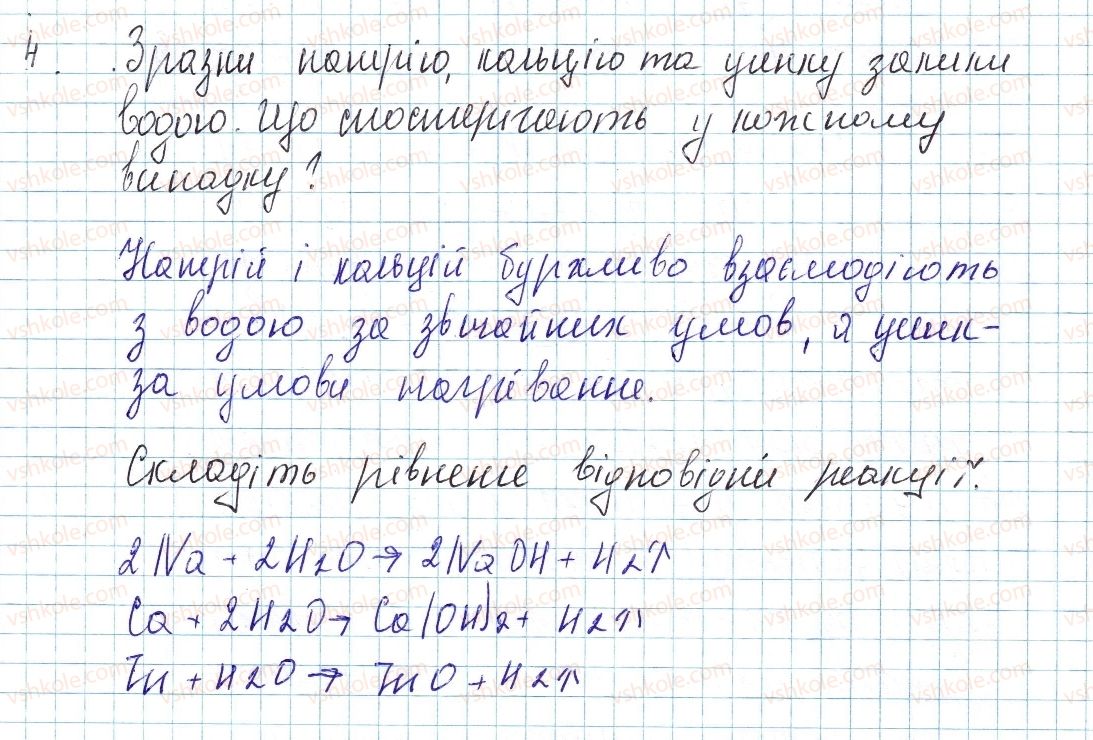 4. Зразки натрію, кальцію та цинку залили
водою. Що спостерігають у кожному
випадку?
Натрій і кальцій бурхливо взаємодіють
з водою за звичайних умов, а цинк-
за умови нагрівання.
Складіть рівнення відповідни реакції.
2Na + 2H2O → 2NaOH + H2↑
Ca + 2H2O → Ca(OH)2 + H2↑
Zn + H2O → ZnO + H2↑